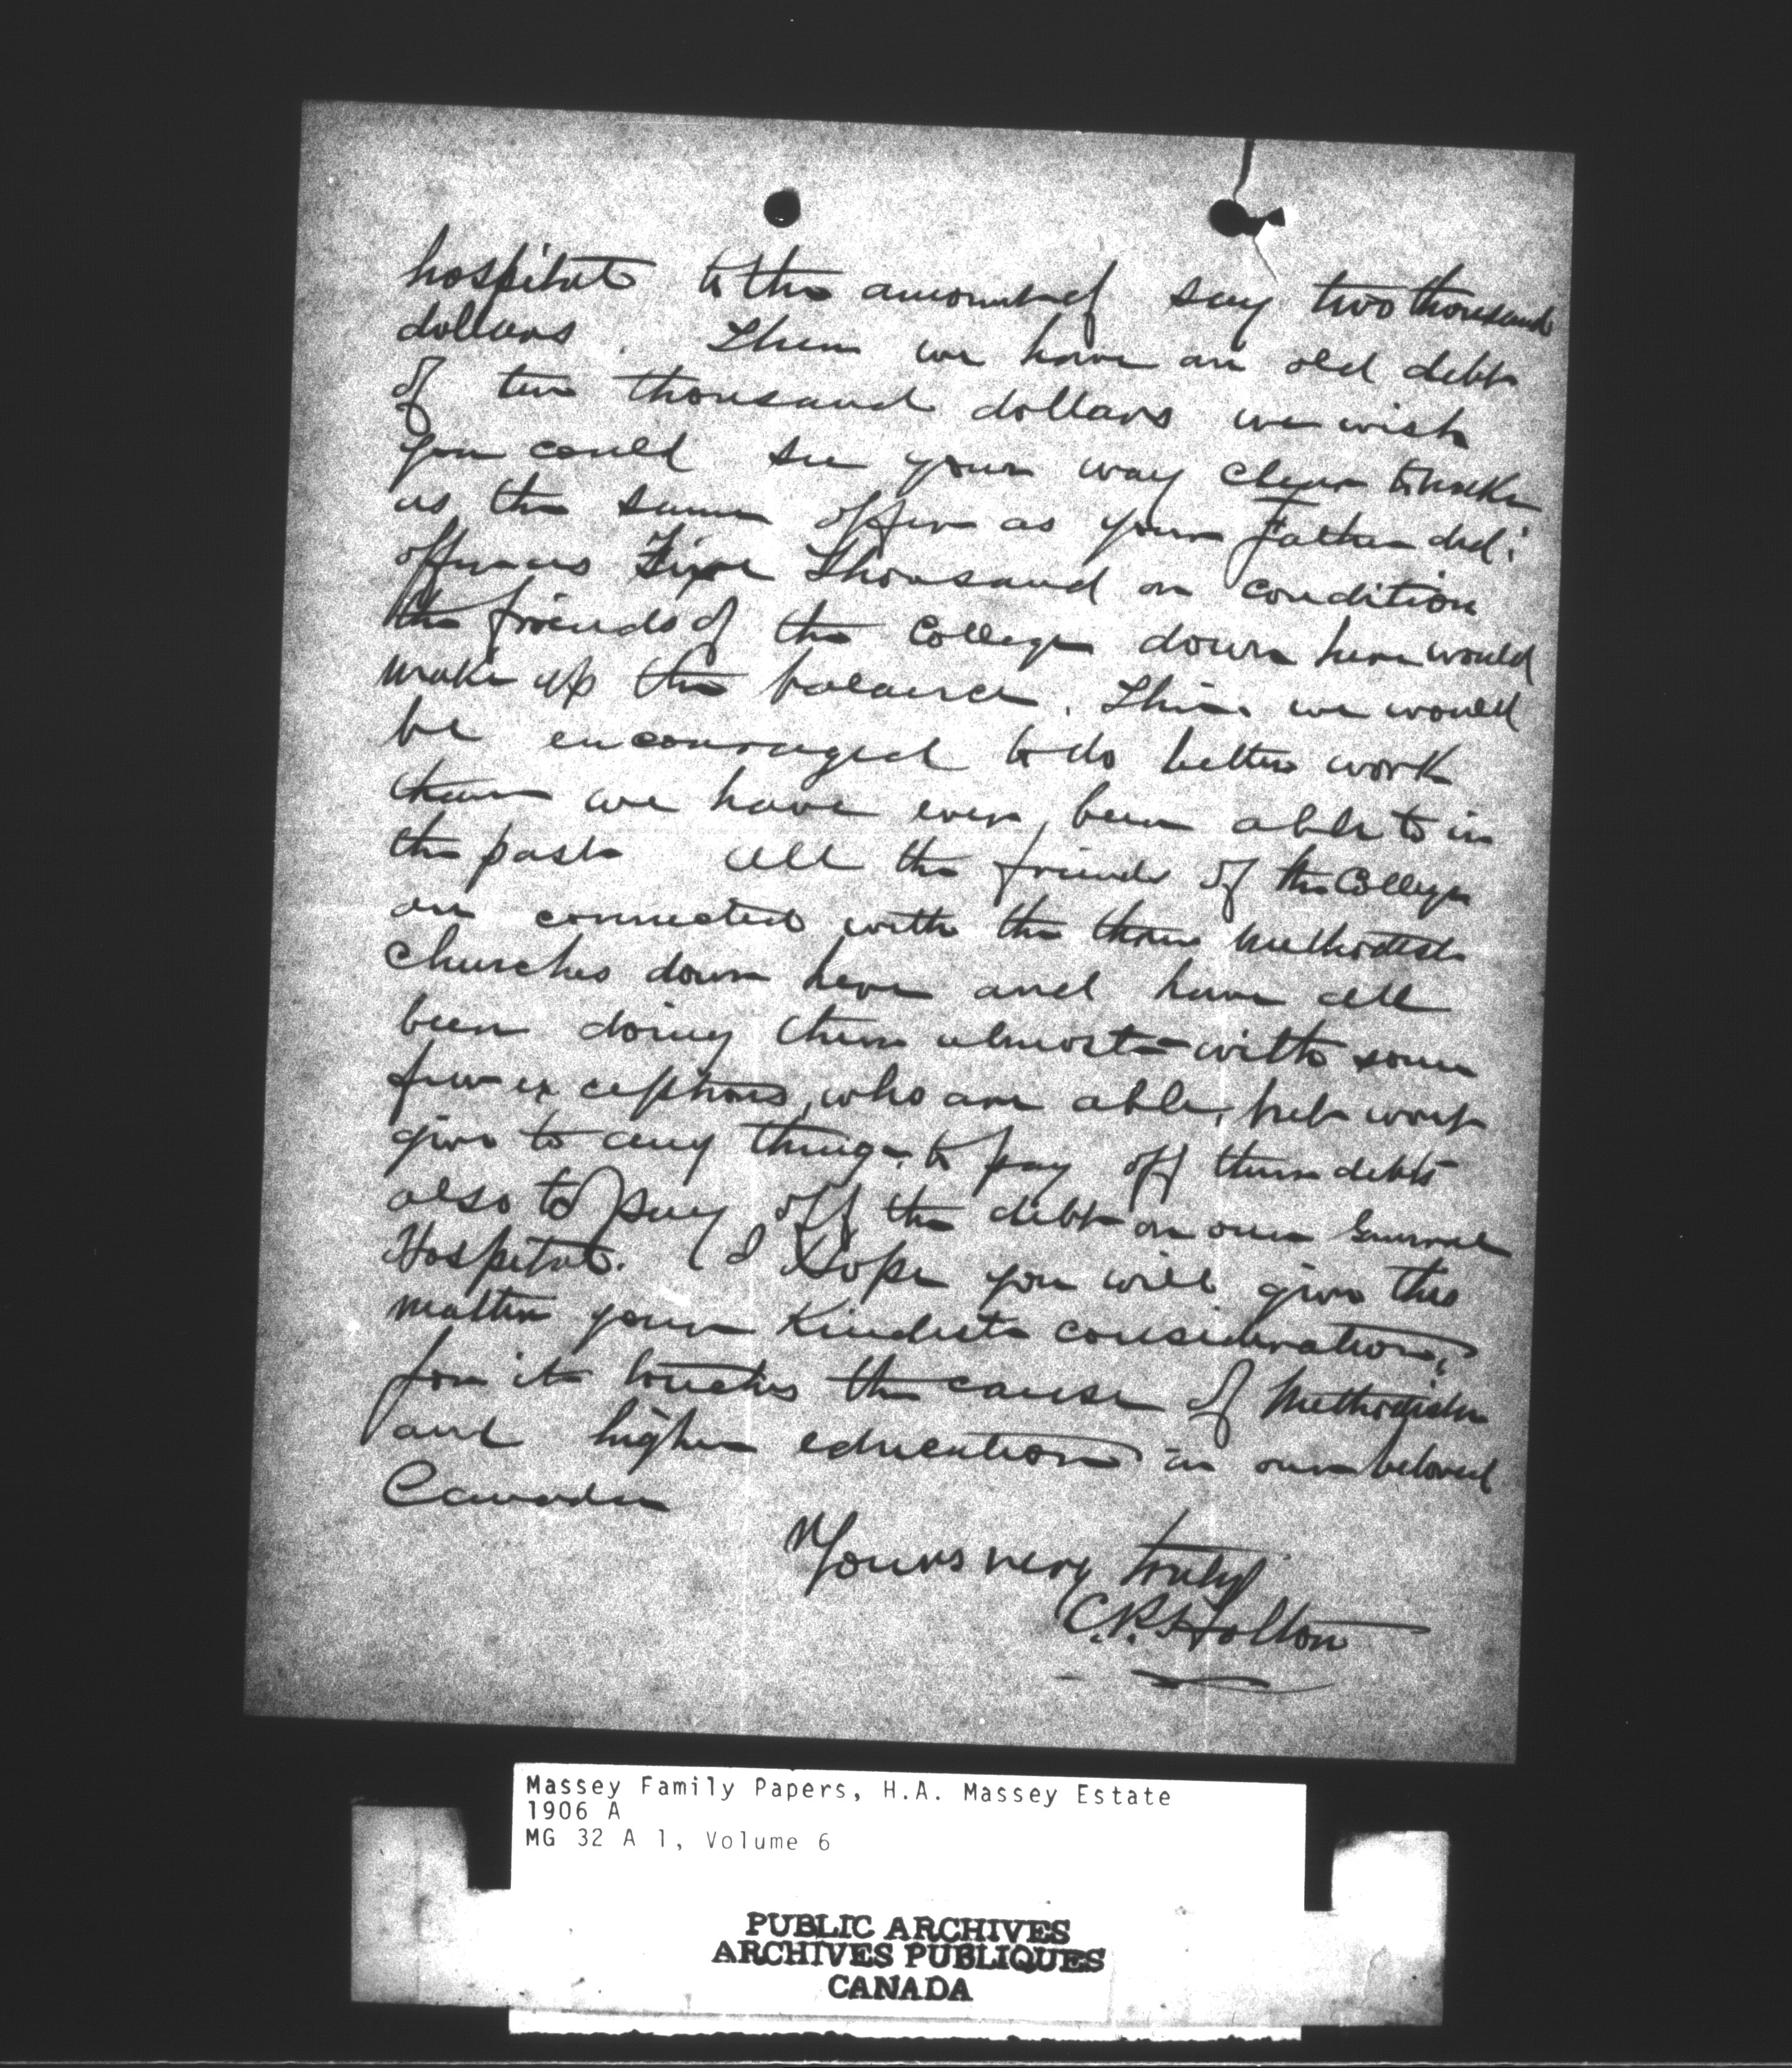 hospital to the amount of say two thousand
dollars. Then we have an old debt
of ten thousand dollars we wish
you could see your way clear to make
us the same offer as your Father did:
offer us Five Thousand on condition
the friends of the College down here would
make up the balance. Then we would
be encouraged to do better work
than we have ever been able to in
the past all the friends of the College
are connected with the three Methodist
churches down here and have all
been doing their utmost with some
few exceptions, who are able, but wont
give to any thing. to pay off their debts
also to pay off the debt on our General
Hospital. (I Hope you will give this
matter your Kindest consideration,
for it touches the cause of Methodism
and higher education in our beloved
Canada
Yours very truly
C.P. Holton
Massey Family Papers, H.A. Massey Estate
1906 A
MG 32 A 1, Volume 6
PUBLIC ARCHIVES
ARCHIVES PUBLIQUES
CANADA